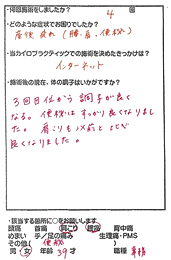 ・何回施術をしましたか?
4 回
・どのような症状でお困りでしたか?
産後 疲れ (腰、肩、便秘)
・当カイロプラクティックでの施術を決めたきっかけは?
インターネット
・施術後の現在、体の調子はいかがですか?
3回目位から 調子が良く
なる。 便秘は すっかり良くなりまし
た。 肩こりも 以前と
良くなりました。
・該当する箇所に○をお願いします
頭痛 首痛 肩こり 腰痛 背中痛
めまい 手/足の痛み 生理痛・PMS
その他( 便秘 )
男 女 年齢 39才 職種